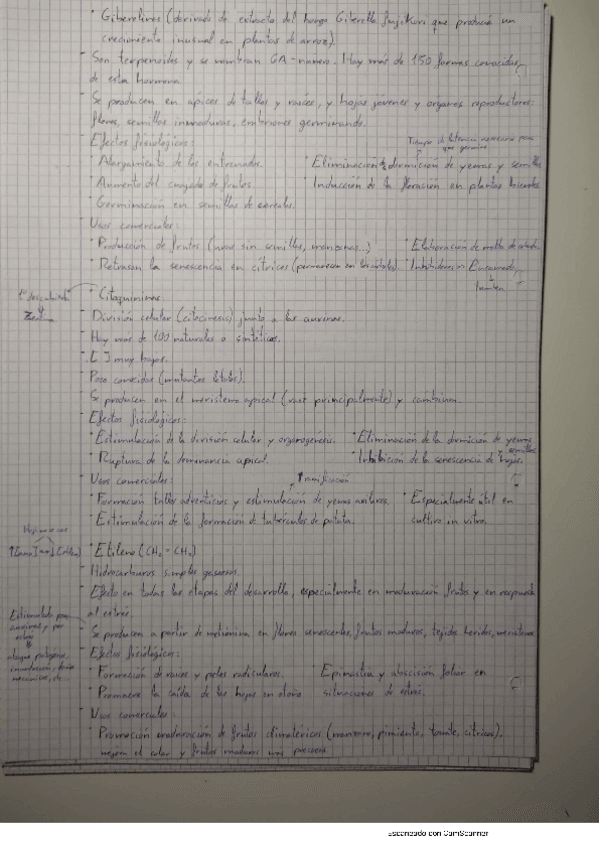 • Giberelinas (derivado de extracto del hongo Giberella fujikori que producía un
crecimiento inusual en plantas de arroz).
- Son terpenoides y se nombran GA-número. Hay más de 150 formas conocidas
de esta hormona.
- Se producen en ápices de tallos y raíces, y hojas jóvenes y órganos reproductores:
flores, semillas inmaduras, embriones germinando.
- Efectos fisiológicos:
Tiempo de latencia necesario para que germine
• Alargamiento de los entrenudos. • Eliminación de dormición de yemas y semillas
• Aumento del cuajado de frutos • Inducción de la floración en plantas bienales
• Germinación en semillas de cereales.
- Usos comerciales:
• Producción de frutos (uvas sin semillas, manzanas...) • Elaboración de malta de cebada.
• Retrasan la senescencia en cítricos (permanecen en los árboles). • Inhibidores
• Citoquininas.
- División celular (citocinesis) junto a las auxinas.
- Hay más de 100 naturales o sintéticas.
- [ ] muy bajas.
- Poco conocidas (mutantes letales).
- Se producen en el meristemo apical (raíz principalmente) y cambium.
- Efectos fisiológicos:
• Estimulación de la división celular y organogénesis. • Eliminación de la dormición de yemas
semillas
• Ruptura de la dominancia apical. • Inhibición de la senescencia de hojas.
- Usos comerciales: ↑ramificación
• Formación tallos adventicios y estimulación de yemas axilares. • Especialmente útil en
cultivo in vitro.
• Estimulación de la formación de tubérculos de patata.
• Etileno (CH₂=CH₂)
- Hidrocarburos simples gaseosos.
- Efecto en todas las etapas del desarrollo, especialmente en maduración frutos y en respuesta
al estrés.
Estimulado por
auxinas y por
estrés
ataque patógenos,
inundación, daños
mecánicos, etc
- Se producen a partir de metionina en flores senescentes, frutos maduros, tejidos heridos, meristemos
- Efectos fisiológicos:
• Formación de raíces y pelos radiculares. • Epinastia y abscisión foliar en
• Promueve la caída de las hojas en otoño situaciones de estrés.
- Usos comerciales:
• Promoción maduración de frutos climatéricos (manzana, pimiento, tomate, cítricos),
mejora el color y frutos maduros más
Escaneado con CamScanner